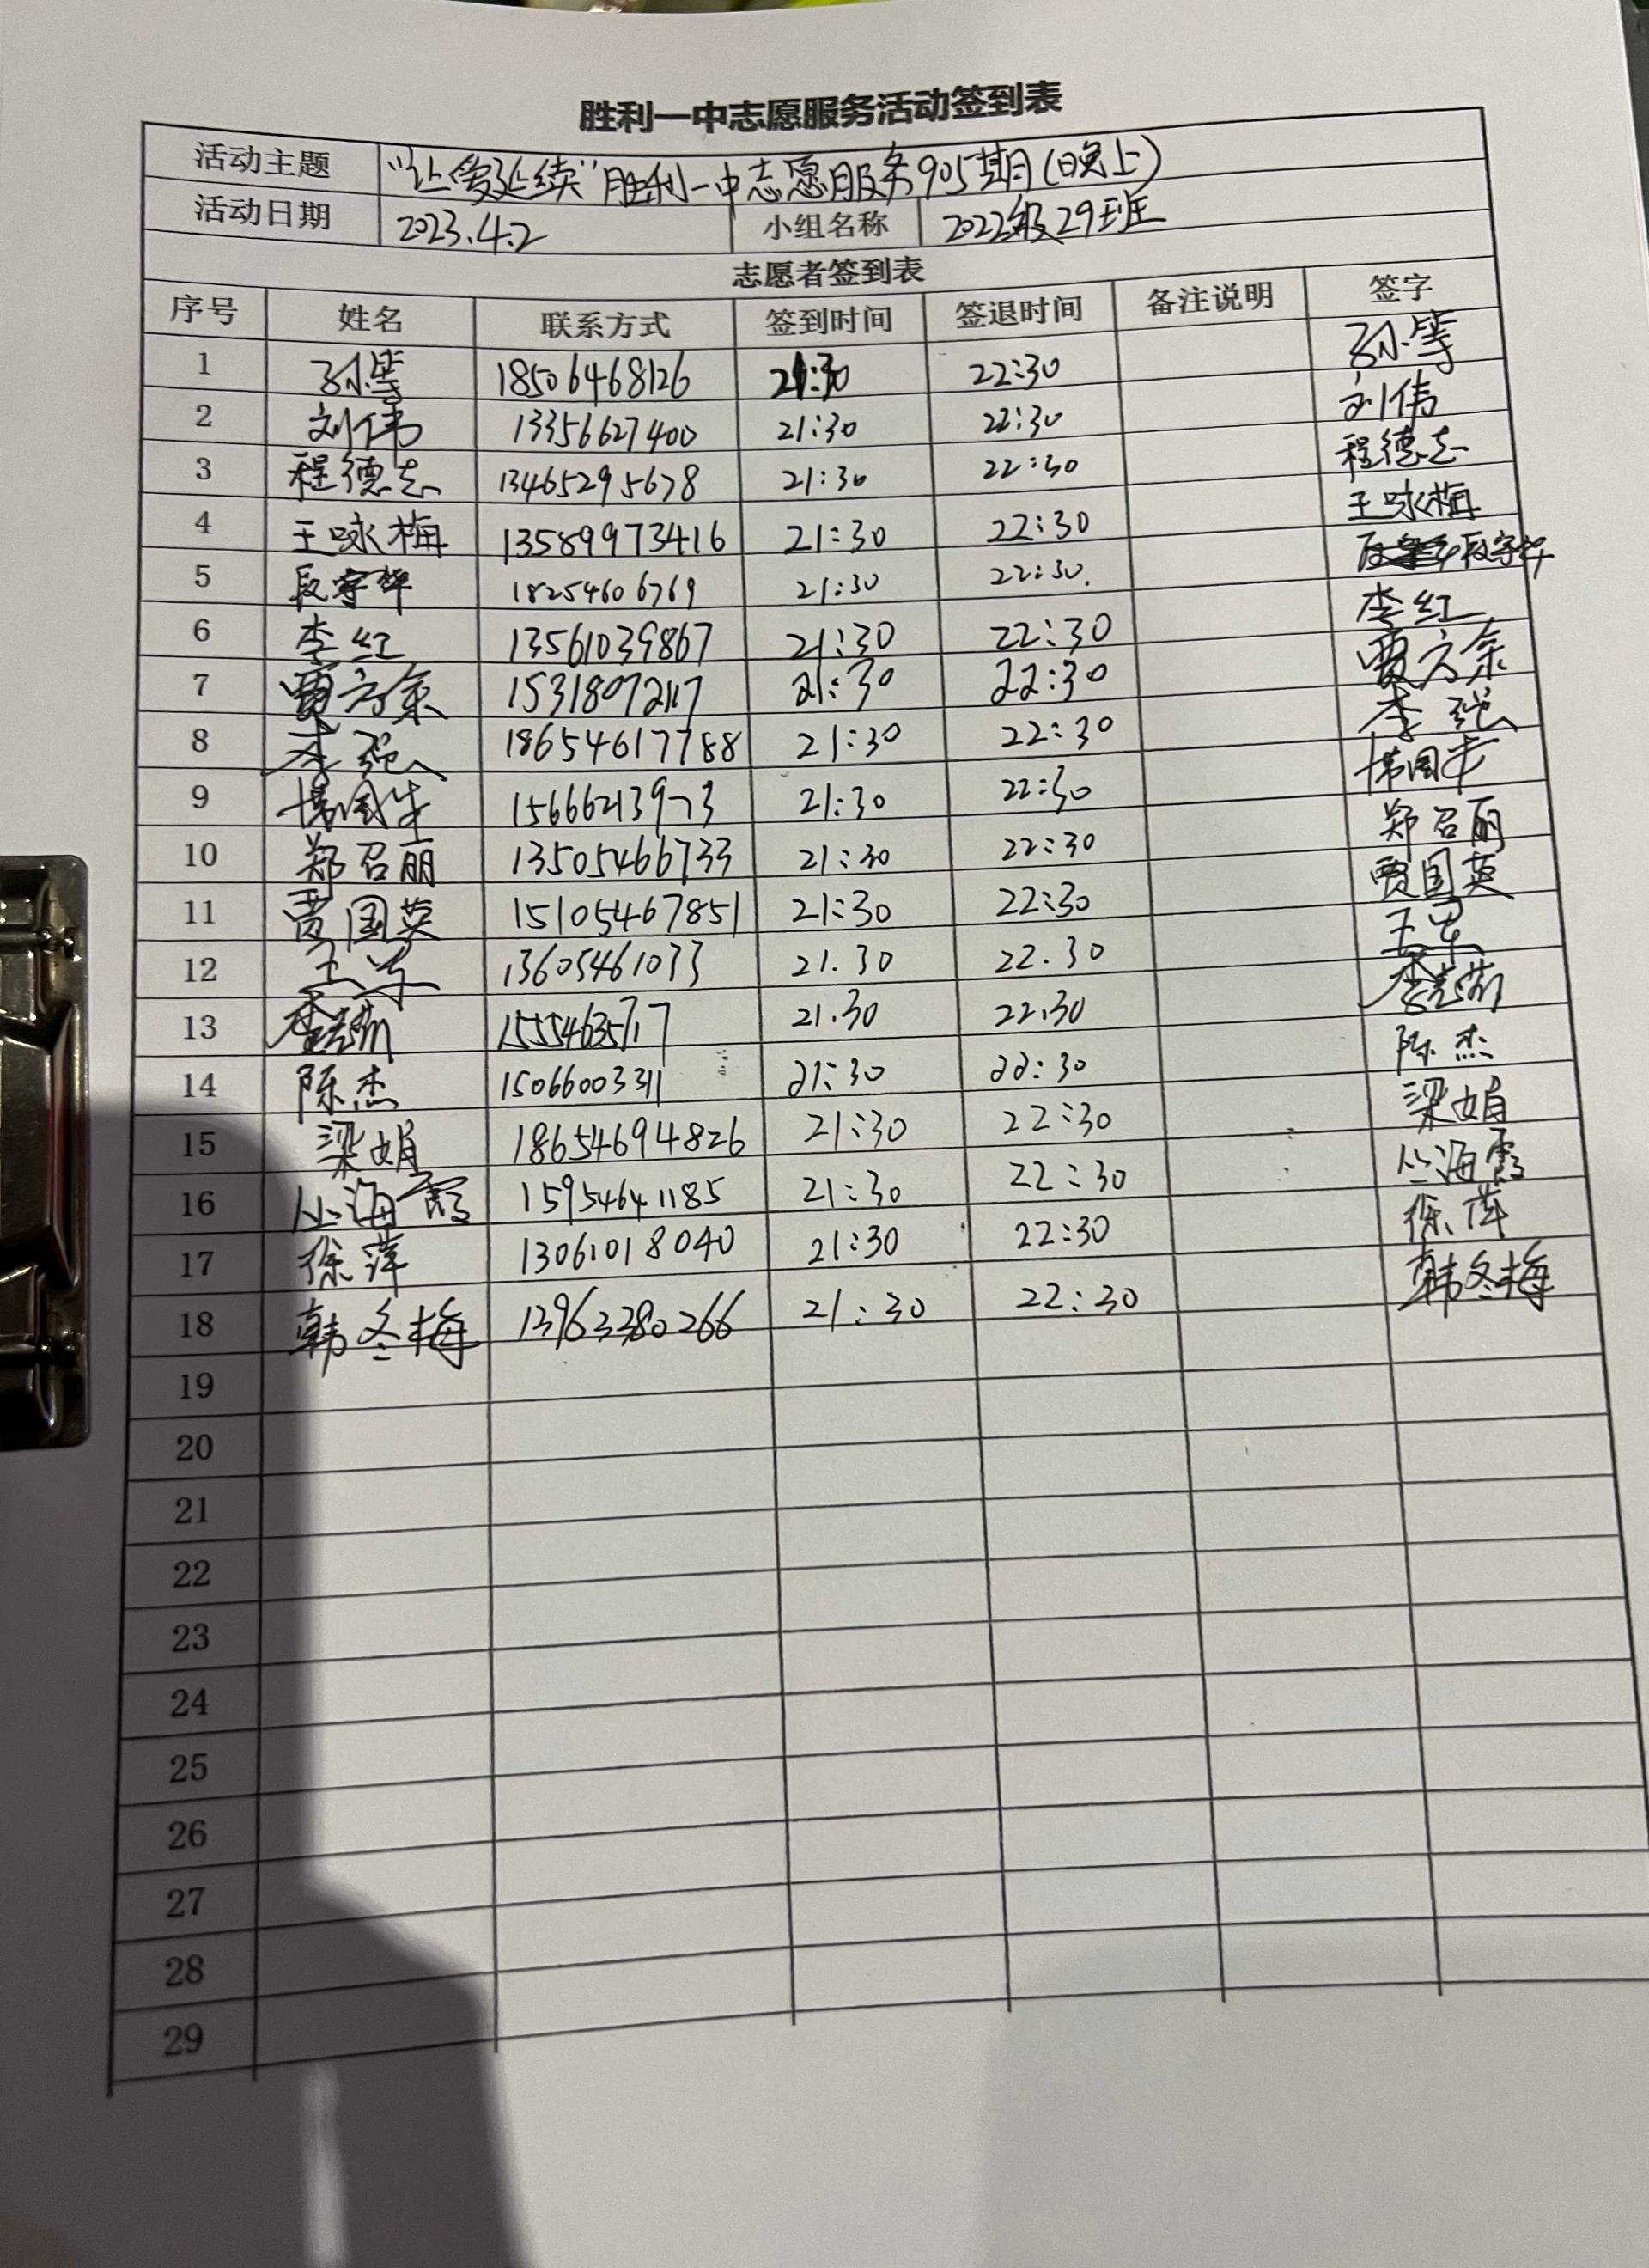 胜利一中志愿服务活动签到表
活动主题 "让爱延续"胜利一中志愿服务905期(晚上)
活动日期 2023.4.2 小组名称 2022级29班
志愿者签到表
序号 姓名 联系方式 签到时间 签退时间 备注说明 签字
1 18506468126 21:30 22:30
2 刘伟 13356627400 21:30 22:30 刘伟
3 程德志 13465295678 21:30 22:30 程德志
4 王咏梅 13589973416 21:30 22:30 王咏梅
5 段宇华 18254606769 21:30 22:30. 段宇华
6 李红 13561039867 21:30 22:30 李红
7 贾方余 15318072117 21:30 22:30 贾方余
8 李强 18654617788 21:30 22:30 李强
9 15666213973 21:30 22:30
10 郑召丽 13505466733 21:30 22:30 郑召丽
11 贾国英 15105467851 21:30 22:30 贾国英
12 王军 13605461033 21.30 22.30 王军
13 21.30 22.30
14 陈杰 15066003311 21:30 22:30 陈杰
15 梁娟 18654694826 21:30 22:30 梁娟
16 丛海霞 15954641185 21:30 22:30 丛海霞
17 徐萍 13061018040 21:30 22:30 徐萍
18 韩冬梅 13963380266 21:30 22:30 韩冬梅
19
20
21
22
23
24
25
26
27
28
29